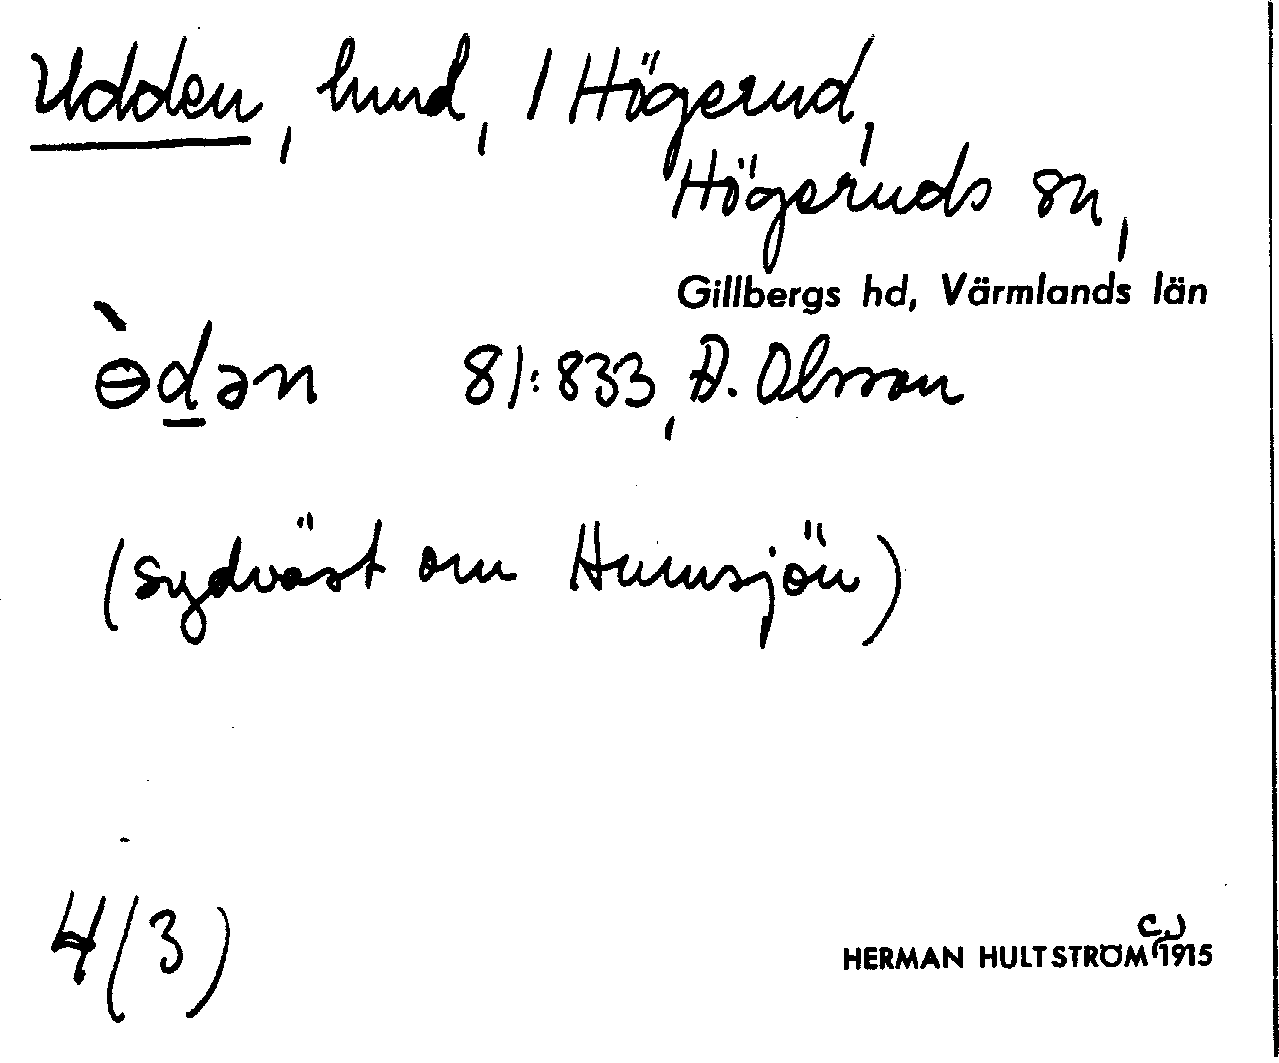 Udden, hmd, / Högerud,
Högeruds sn,
Gillbergs hd, Värmlands län
ɵ̀d̲ən 81:833, A. Olsson
(sydväst om Humsjön)
4(3)
HERMAN HULTSTRÖM 1915